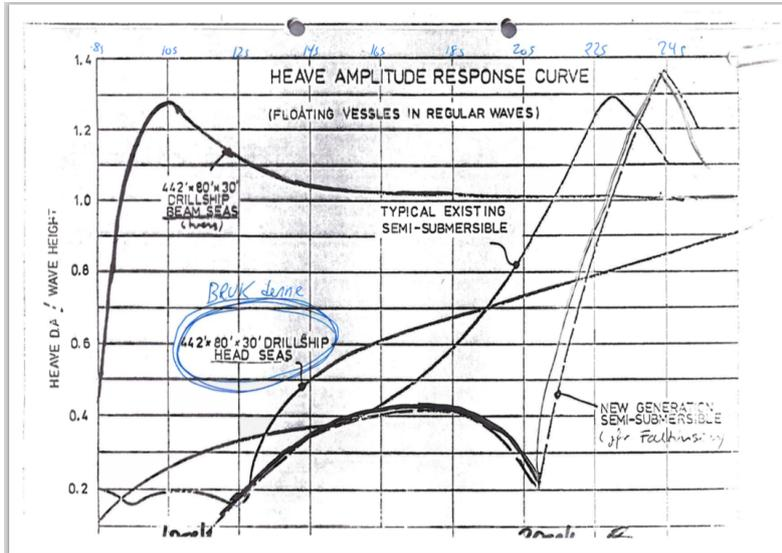 8s 10s 12s 14s 16s 18s 20s 22s 24s
HEAVE AMPLITUDE RESPONSE CURVE
(FLOATING VESSLES IN REGULAR WAVES)
1.4
1.2
1.0
0.8
0.6
0.4
0.2
HEAVE D.A / WAVE HEIGHT
442'×80'×30'
DRILLSHIP
BEAM SEAS
(tvers)
TYPICAL EXISTING
SEMI-SUBMERSIBLE
BRUK denne
442'×80'×30' DRILLSHIP
HEAD SEAS
NEW GENERATION
SEMI-SUBMERSIBLE